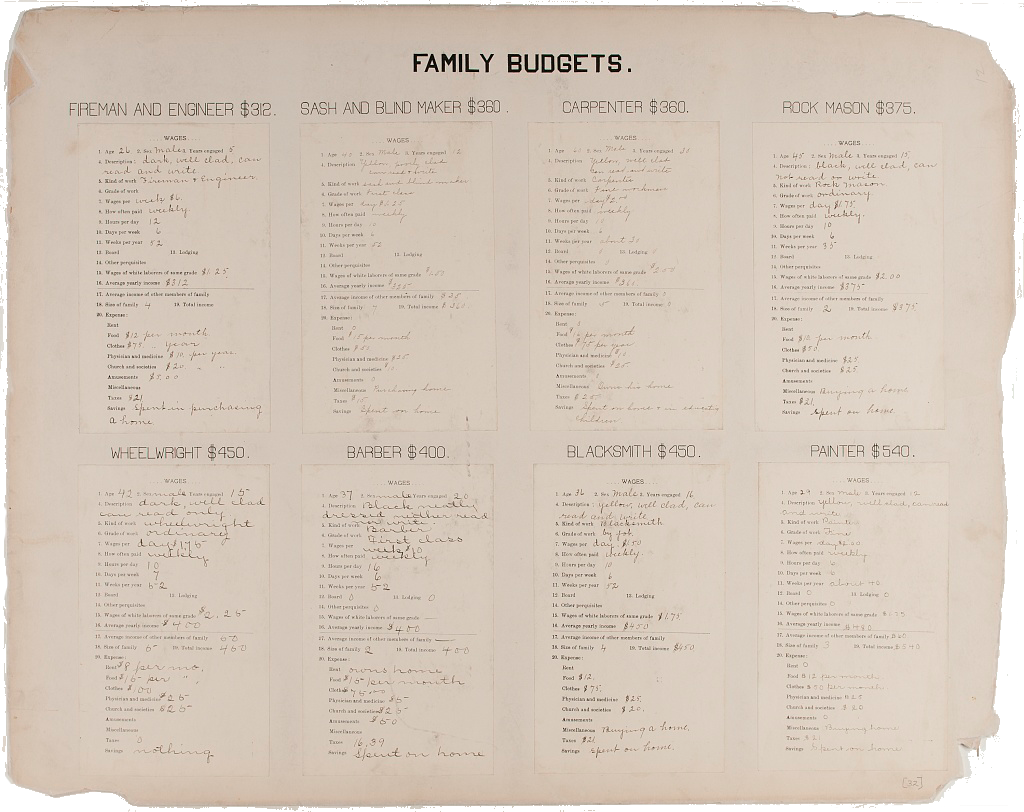 FAMILY BUDGETS.
FIREMAN AND ENGINEER $312.
WAGES
1. Age 26 2. Sex Males Years engaged 5
4. Description: dark, well clad, can
read and write
5. Kind of work Fireman & Engineer
6. Grade of work
7. Wages per week $6.
8. How often paid weekly.
9. Hours per day 12
10. Days per week 6
11. Weeks per year 52
12. Board 13. Lodging
14. Other perquisites
15. Wages of white laborers of same grade $1.25
16. Average yearly income $312
17. Average income of other members of family
18. Size of family 4 19. Total income
20. Expense:
Rent
Food $12 per month
Clothes $75 " year
Physician and medicine $10. per year
Church and societies $20. " "
Amusements $5.00
Miscellaneous
Taxes $21
Savings Spent in purchasing
a home
SASH AND BLIND MAKER $360.
WAGES
1. Age 2. Sex Male 3. Years engaged 12
4. Description Yellow, poorly clad
can read & write
5. Kind of work sash and blind maker
6. Grade of work First class
7. Wages per day $1.25
8. How often paid weekly
9. Hours per day 10
10. Days per week 6
11. Weeks per year 52
12. Board 13. Lodging
14. Other perquisites
15. Wages of white laborers of same grade
16. Average yearly income
17. Average income of other members of family
18. Size of family 19. Total income $360
20. Expense:
Rent 0
Food $15 per month
Clothes $50
Physician and medicine $25
Church and societies
Amusements 0
Miscellaneous Purchasing home
Taxes
Savings Spent on home
CARPENTER $360.
WAGES
1. Age 2. Sex Male 3. Years engaged 20
4. Description Yellow, well clad
can read and write
5. Kind of work Carpenter
6. Grade of work Fine workman
7. Wages per day $2.00
8. How often paid weekly
9. Hours per day 10
10. Days per week 6
11. Weeks per year about 30
12. Board 13. Lodging
14. Other perquisites
15. Wages of white laborers of same grade
16. Average yearly income $360
17. Average income of other members of family
18. Size of family 19. Total income
20. Expense:
Rent
Food per month
Clothes $75 per year
Physician and medicine
Church and societies $25
Amusements
Miscellaneous Owns his home
Taxes
Savings Spent on home & in educating
children
ROCK MASON $375.
WAGES
1. Age 45 2. Sex Male 3. Years engaged 15
4. Description: black, well clad, can
not read or write
5. Kind of work Rock Mason
6. Grade of work ordinary
7. Wages per day $1.75
8. How often paid weekly.
9. Hours per day 10
10. Days per week 6
11. Weeks per year 35
12. Board 13. Lodging
14. Other perquisites
15. Wages of white laborers of same grade $2.00
16. Average yearly income $375
17. Average income of other members of family
18. Size of family 2 19. Total income $375
20. Expense:
Rent
Food $10 per month
Clothes $50
Physician and medicine $25
Church and societies $25
Amusements
Miscellaneous Buying a home
Taxes $21
Savings Spent on home.
WHEELWRIGHT $450.
WAGES
1. Age 42 2. Sex male Years engaged 15
4. Description dark, well clad
can read only
5. Kind of work wheelwright
6. Grade of work ordinary
7. Wages per day $1.75
8. How often paid weekly
9. Hours per day 10
10. Days per week 7
11. Weeks per year 52
12. Board 13. Lodging
14. Other perquisites
15. Wages of white laborers of same grade $2.25
16. Average yearly income $400
17. Average income of other members of family 50
18. Size of family 5 19. Total income 450
20. Expense:
Rent $8 per mo.
Food $15 per " "
Clothes $100
Physician and medicine $25
Church and societies $25
Amusements
Miscellaneous
Taxes 0
Savings nothing
BARBER $400.
WAGES
1. Age 37 2. Sex male Years engaged 20
4. Description Black neatly
dressed neither read
nor write
5. Kind of work Barber
6. Grade of work First class
7. Wages per week $10
8. How often paid weekly
9. Hours per day 16
10. Days per week 6
11. Weeks per year 52
12. Board 0 13. Lodging 0
14. Other perquisites 0
15. Wages of white laborers of same grade —
16. Average yearly income $400
17. Average income of other members of family —
18. Size of family 2 19. Total income 400
20. Expense:
Rent owns home
Food $15 per month
Clothes $75.00
Physician and medicine $5
Church and societies $25
Amusements $50
Miscellaneous
Taxes 16.39
Savings Spent on home
BLACKSMITH $450.
WAGES
1. Age 36 2. Sex Males Years engaged 16
4. Description: Yellow, well clad, can
read and write
5. Kind of work Blacksmith
6. Grade of work by job
7. Wages per day $1.50
8. How often paid weekly.
9. Hours per day 10
10. Days per week 6
11. Weeks per year 52
12. Board 13. Lodging
14. Other perquisites
15. Wages of white laborers of same grade $1.75
16. Average yearly income $450
17. Average income of other members of family
18. Size of family 4 19. Total income $450
20. Expense:
Rent
Food $12.
Clothes $75.
Physician and medicine $25
Church and societies $20.
Amusements
Miscellaneous Buying a home.
Taxes $21
Savings Spent on home.
PAINTER $540.
WAGES
1. Age 29 2. Sex Male 3. Years engaged 12
4. Description Yellow, well clad, can read
and write
5. Kind of work Painter
6. Grade of work Fine
7. Wages per day $2.00
8. How often paid weekly
9. Hours per day
10. Days per week 6
11. Weeks per year about 40
12. Board 0 13. Lodging 0
14. Other perquisites 0
15. Wages of white laborers of same grade
16. Average yearly income $480
17. Average income of other members of family $60
18. Size of family 3 19. Total income $540
20. Expense:
Rent 0
Food $12 per month
Clothes per month
Physician and medicine $25
Church and societies $20
Amusements 0
Miscellaneous Buying home
Taxes $21
Savings Spent on home
[32]